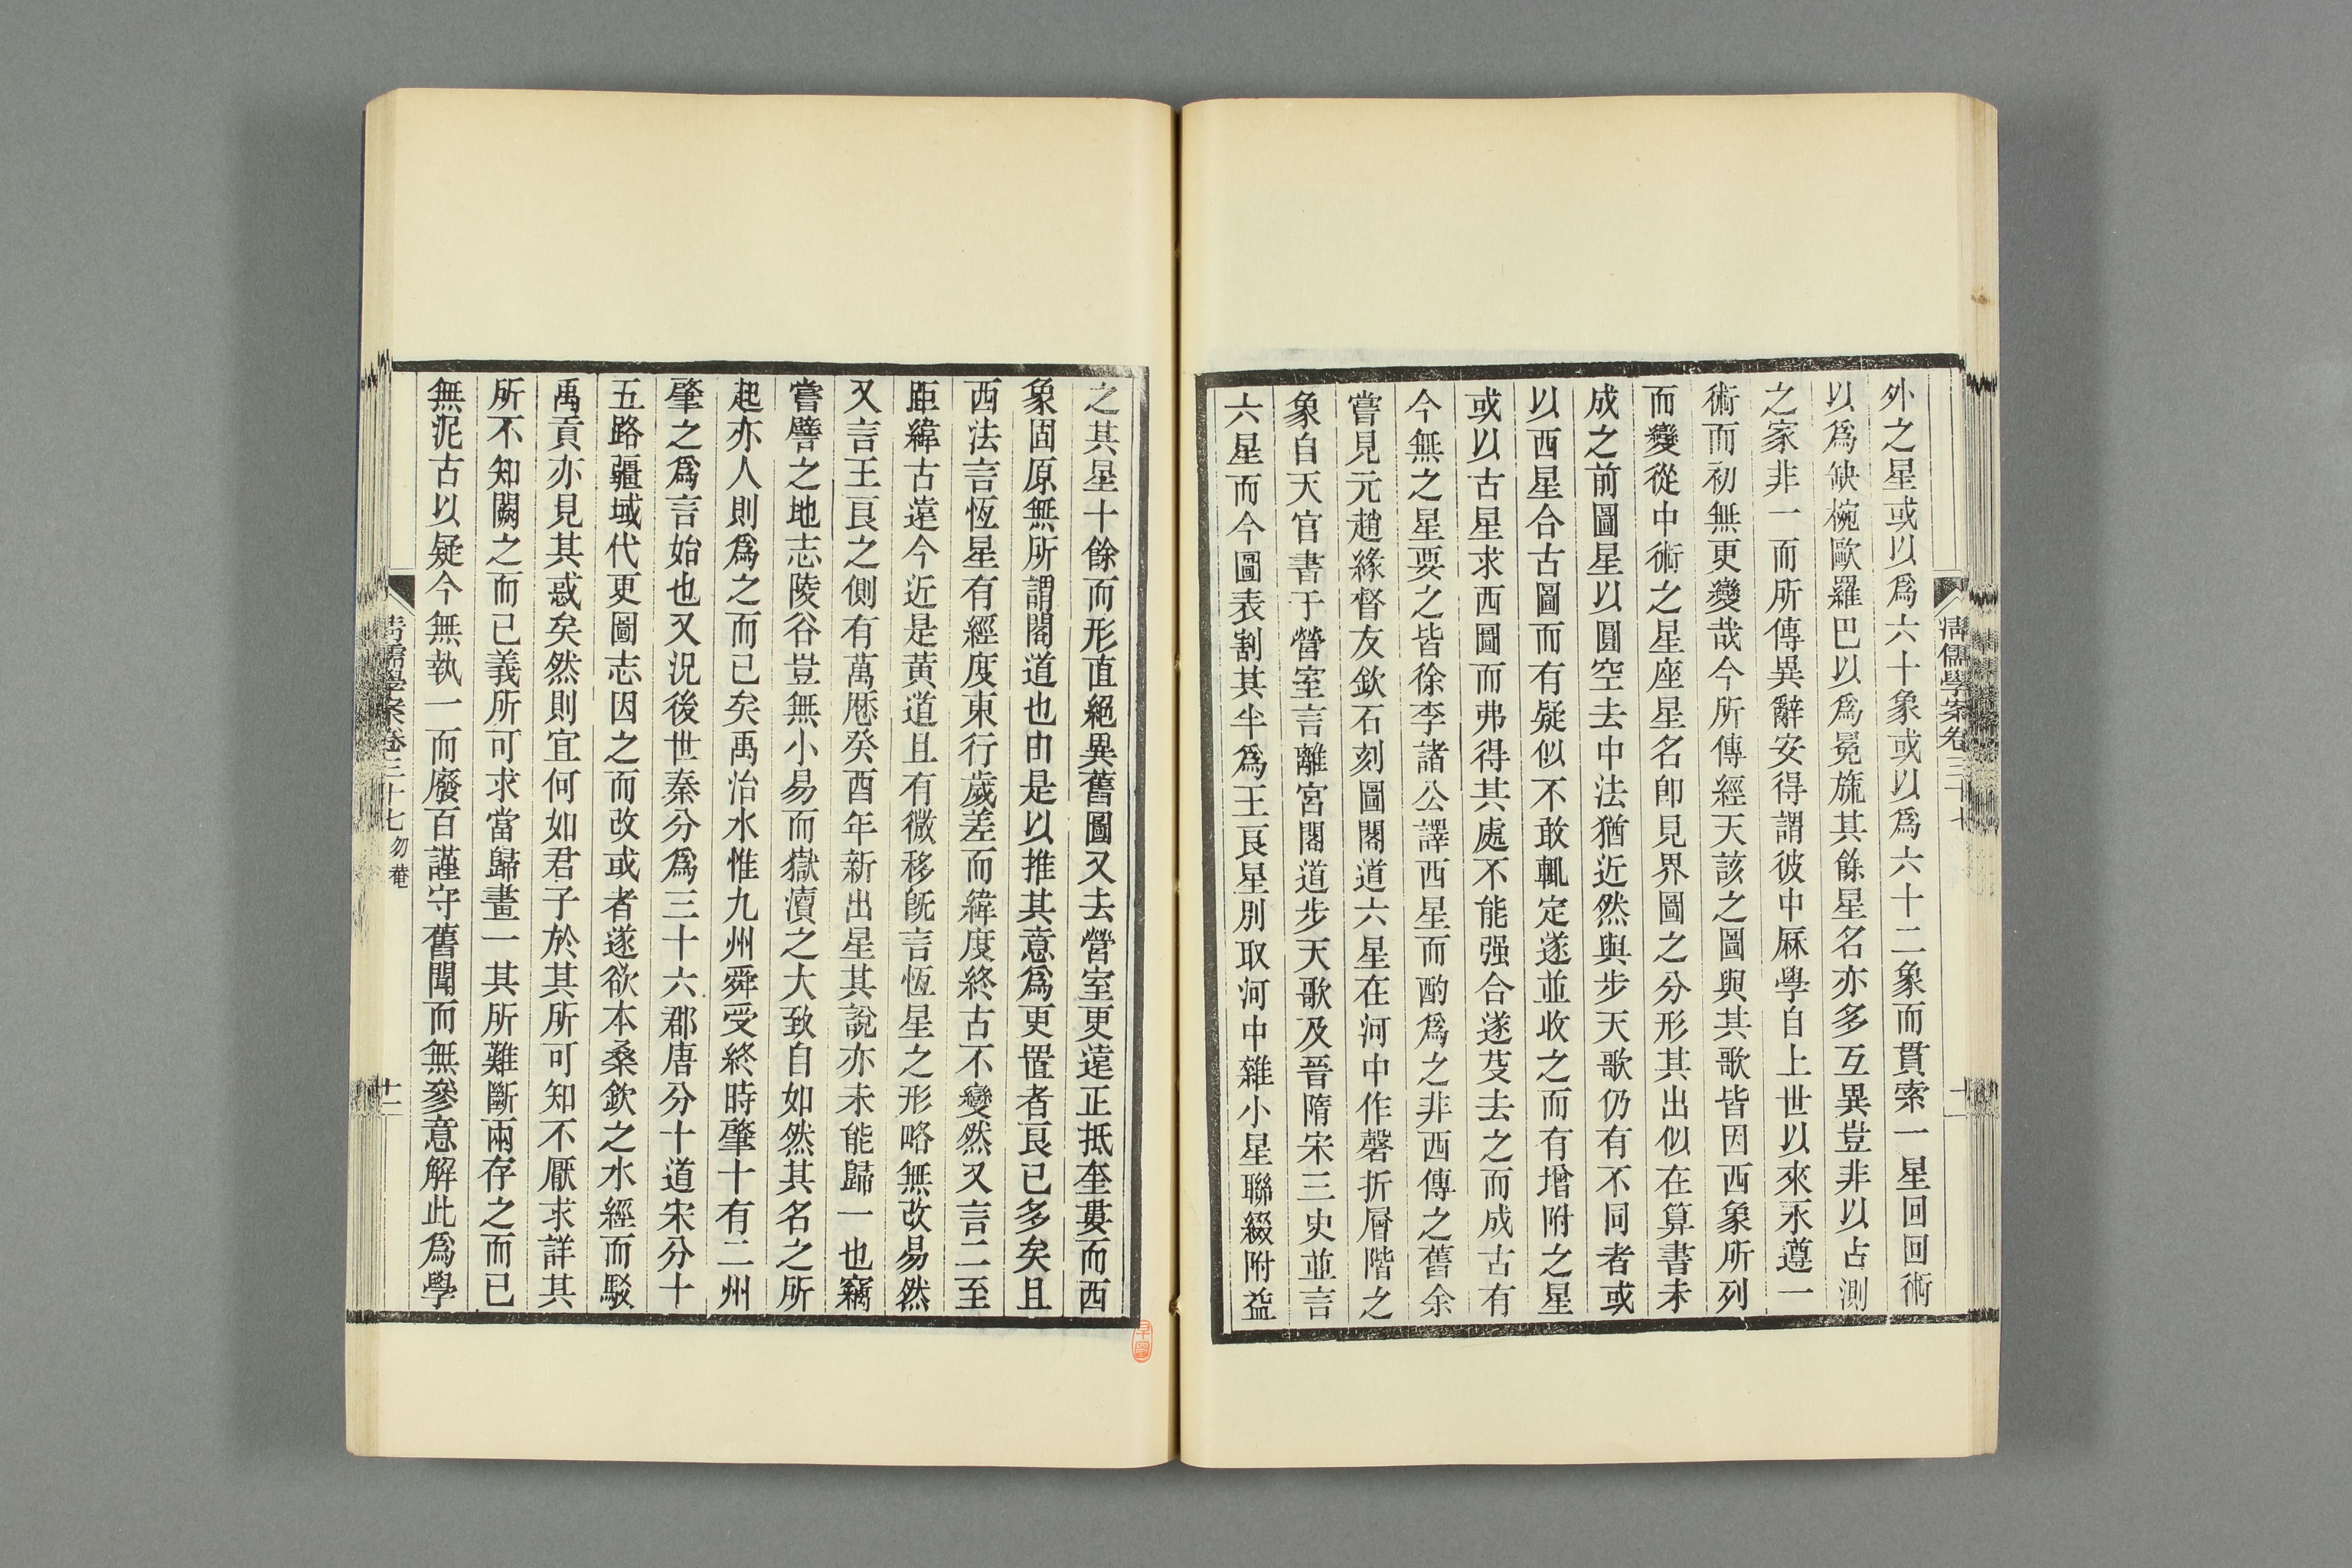 清儒學案卷三十七
十一
外之星或以爲六十象或以爲六十二象而貫索一星回回術
以爲缺椀歐羅巴以爲冕旒其餘星名亦多互異豈非以占測
之家非一而所傳異辭安得謂彼中厤學自上世以來永遵一
術而初無更變哉今所傳經天該之圖與其歌皆因西象所列
而變從中術之星座星名卽見界圖之分形其出似在算書未
成之前圖星以圓空去中法猶近然與步天歌仍有不同者或
以西星合古圖而有疑似不敢輒定遂並收之而有增附之星
或以古星求西圖而弗得其處不能强合遂芟去之而成古有
今無之星要之皆徐李諸公譯西星而酌爲之非西傳之舊余
嘗見元趙緣督友欽石刻圖閣道六星在河中作磬折層階之
象自天官書于營室言離宮閣道步天歌及晉隋宋三史並言
六星而今圖表割其半爲王良星別取河中雜小星聯綴附益
之其星十餘而形直絕異舊圖又去營室更遠正抵奎婁而西
象固原無所謂閣道也由是以推其意爲更置者良已多矣且
西法言恆星有經度東行歲差而緯度終古不變然又言二至
距緯古遠今近是黃道且有微移旣言恆星之形略無改易然
又言王良之側有萬厯癸酉年新出星其說亦未能歸一也竊
嘗譬之地志陵谷豈無小易而嶽瀆之大致自如然其名之所
起亦人則爲之而已矣禹治水惟九州舜受終時肇十有二州
肇之爲言始也又況後世秦分爲三十六郡唐分十道宋分十
五路疆域代更圖志因之而改或者遂欲本桑欽之水經而駁
禹貢亦見其惑矣然則宜何如君子於其所可知不厭求詳其
所不知闕之而已義所可求當歸畫一其所難斷兩存之而已
無泥古以疑今無執一而廢百謹守舊聞而無參意解此爲學
清儒學案卷三十七 勿菴
十一